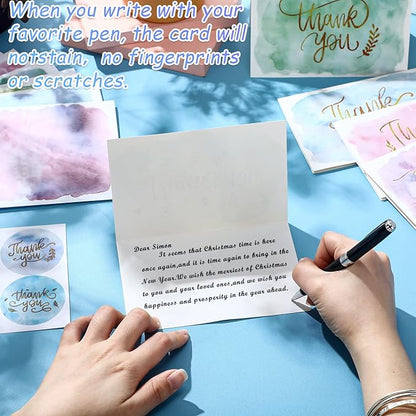 When you write with your
favorite pen, the card will
notstain, no fingerprints
or scratches.
thank
you
Thank
you
Thank
you
Thank
you
Dear Simon
It seems that Christmas time is here
once again,and it is time again to bring in the
New Year.We wish the merriest of Christmas
to you and your loved ones,and we wish you
happiness and prosperity in the year ahead.